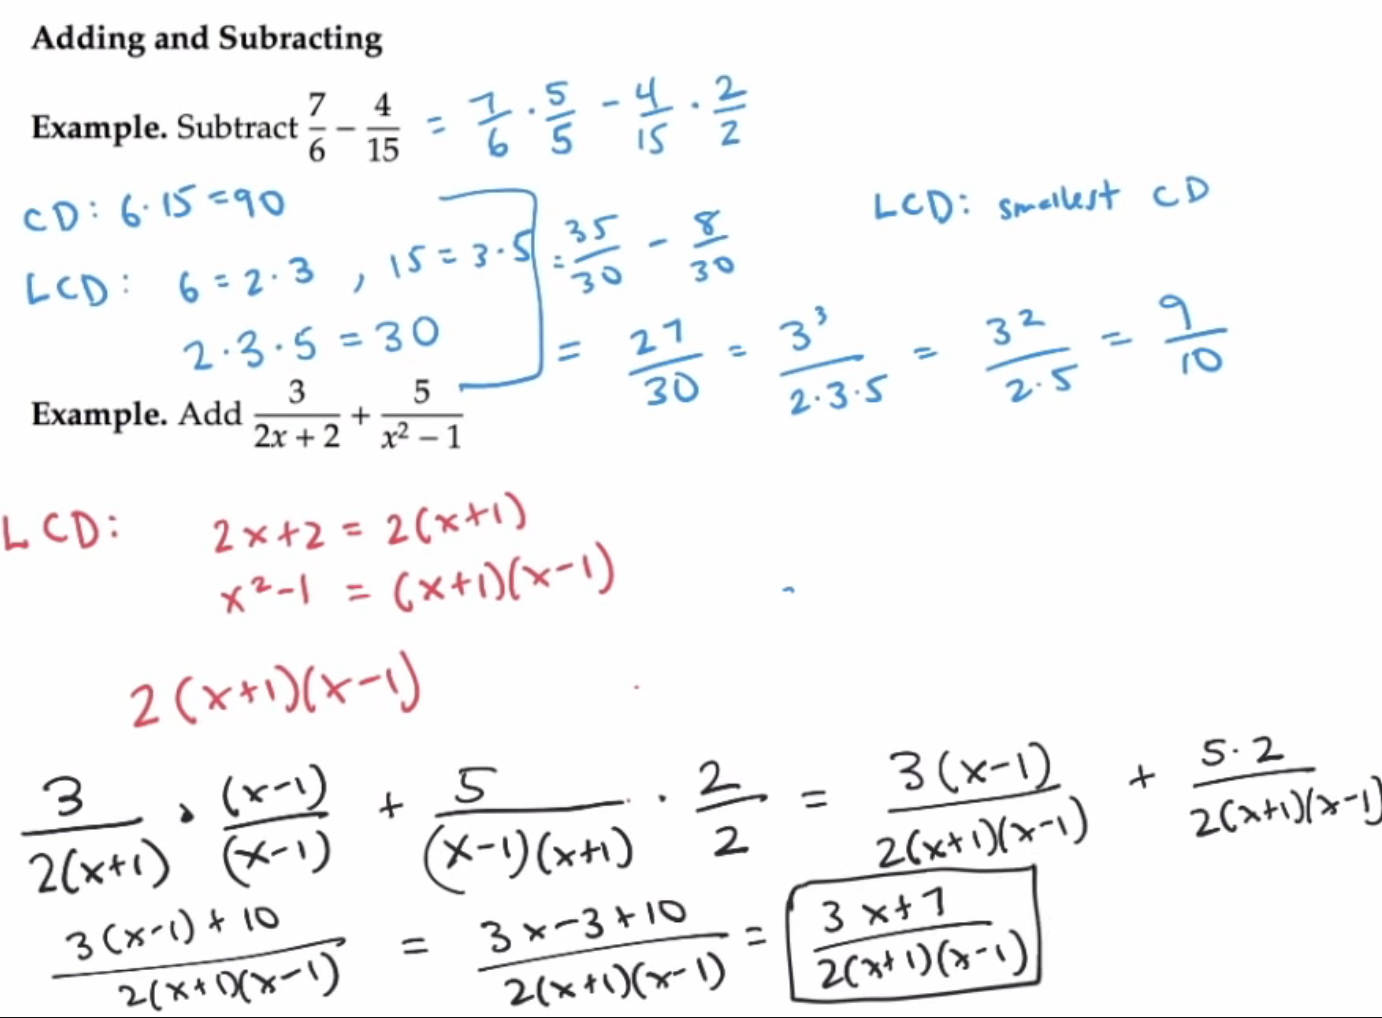 Adding and Subracting
Example. Subtract 7/6 − 4/15 = 7/6 · 5/5 - 4/15 · 2/2
CD: 6·15=90
LCD: smallest CD
LCD: 6=2·3, 15=3·5
2·3·5=30
= 35/30 - 8/30
= 27/30 = 3³/2·3·5 = 3²/2·5 = 9/10
Example. Add 3/(2x + 2) + 5/(x² − 1)
LCD: 2x+2 = 2(x+1)
x²-1 = (x+1)(x-1)
2(x+1)(x-1)
3/2(x+1) · (x-1)/(x-1) + 5/(x-1)(x+1) · 2/2 = 3(x-1)/2(x+1)(x-1) + 5·2/2(x+1)(x-1)
3(x-1)+10/2(x+1)(x-1) = 3x-3+10/2(x+1)(x-1) = 3x+7/2(x+1)(x-1)